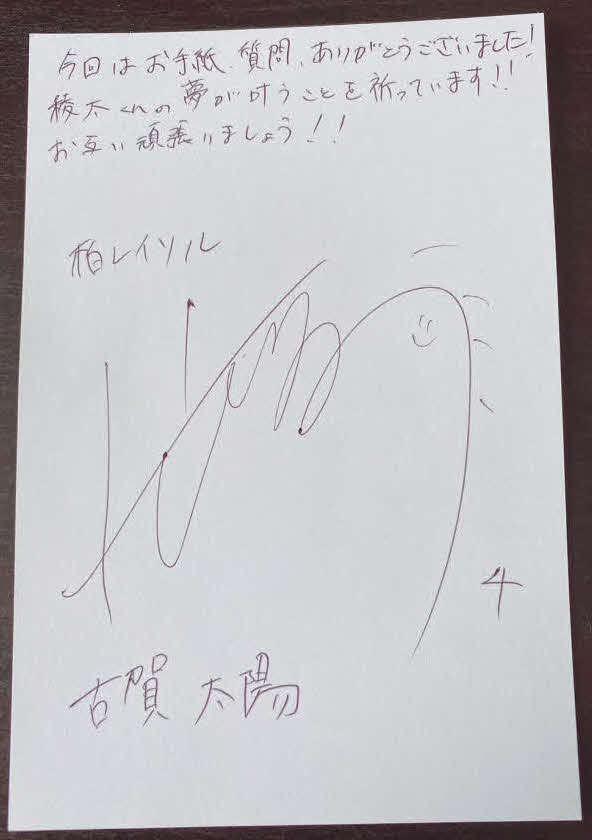 今回はお手紙、質問、ありがとうございました!
稜太くんの夢が叶うことを祈っています!!
お互い頑張りましょう!!
柏レイソル
4
古賀 太陽